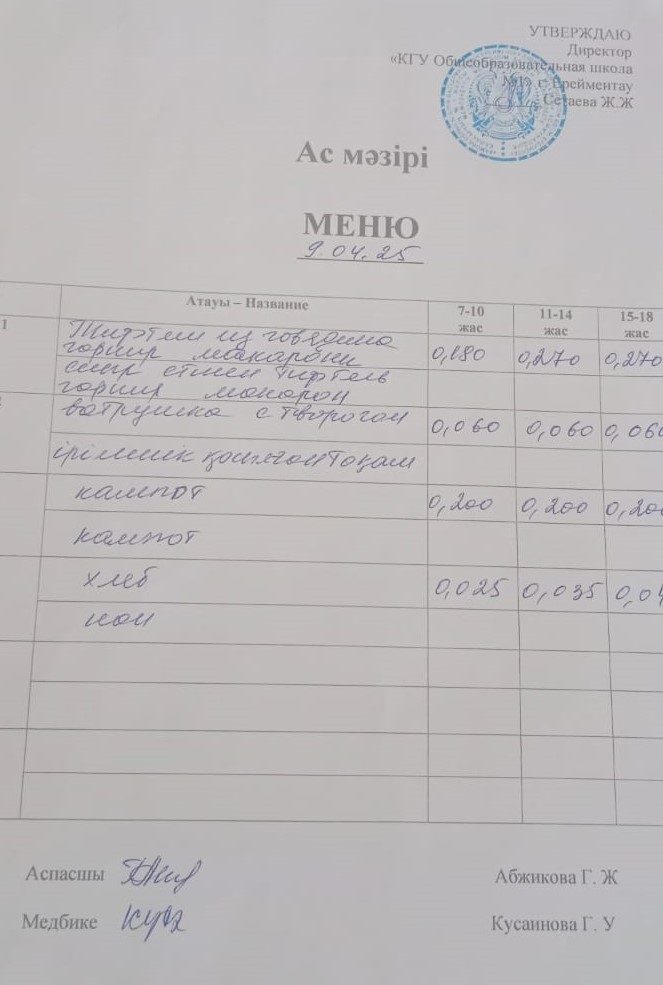 УТВЕРЖДАЮ
Директор
«КГУ Общеобразовательная школа
№1» г. Ерейментау
Сетаева Ж.Ж
Ас мәзірі
МЕНЮ
9.04.25
Атауы – Название 7-10 жас 11-14 жас 15-18 жас
1 Тифтели из говядина
гарнир макарони 0,180 0,270 0,270
сиыр етінен тифтель
гарнир макарон
ватрушка с творогом 0,060 0,060 0,060
ірімшік қосылған тоқаш
кампот 0,200 0,200 0,200
кампот
хлеб 0,025 0,035
нан
Аспасшы Абжикова Г. Ж
Медбике Кусаинова Г. У